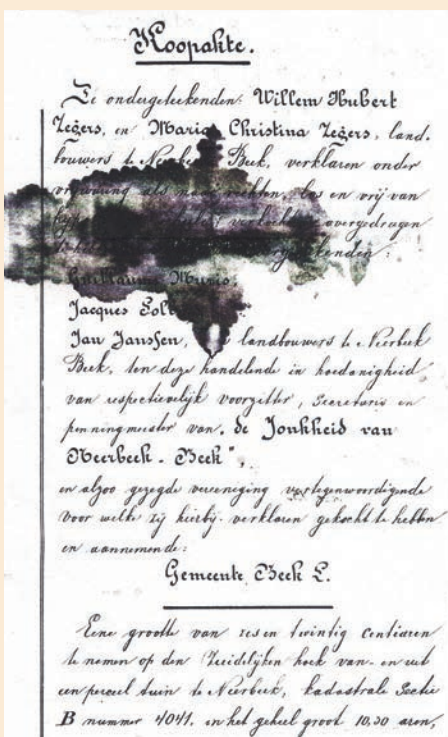 Koopakte.
De ondergeteekenden: Willem Hubert
Zegers, en Maria Christina Zegers, land-
bouwers te Neerbeek Beek, verklaren onder
vrijwaring als naar rechten, los en vrij van
verkocht overgedragen
Guillaume
Jacques
Jan Janssen, landbouwers te Neerbeek
Beek, ten deze handelende in hoedanigheid
van respectievelijk voorzitter, Secretaris en
penningmeester van „de Jonkheid van
Neerbeek-Beek",
en alzoo gezegde vereeniging vertegenwoordigende
voor welke zij hierbij verklaren gekocht te hebben
en aannemende:
Gemeente Beek L.
Eene grootte van zes en twintig centiaren
te nemen op den Zuidelijken hoek van- en uit
een perceel tuin te Neerbeek, kadastrale Sectie
B nummer 4041, in het geheel groot 10,30 aren,